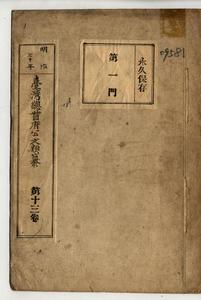 永久保存
第一門
09581
明治
三十年
臺灣總督府公文類纂
第十三卷